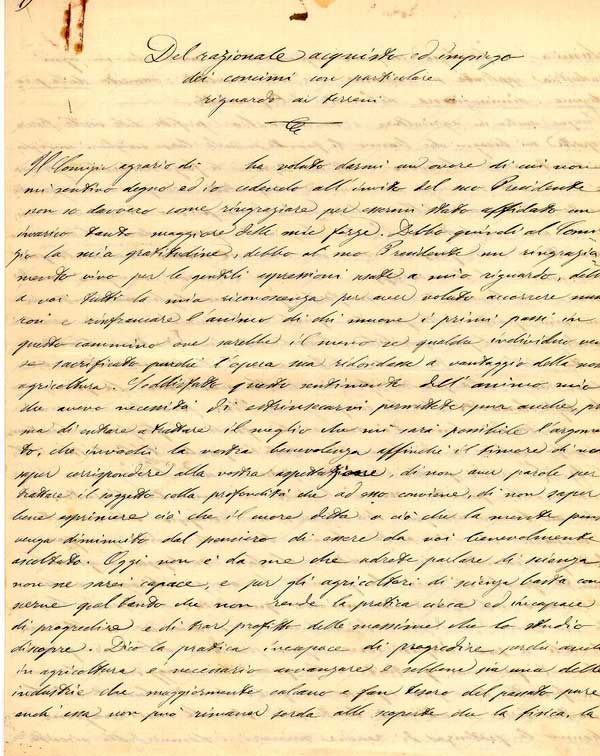 Del razionale acquisto ed impiego
dei concimi con particolare
riguardo ai terreni
Il Comizio agrario di ha voluto darmi un onore di cui non
mi sentivo degno ed io cedendo all'invito del suo Presidente
non so davvero come ringraziare per essermi stato affidato un
incarico tanto maggiore delle mie forze. Debbo quindi al Comi
zio la mia gratitudine, debbo al suo Presidente un ringrazia
mento vivo per le gentili espressioni usate a mio riguardo, debbo
a voi tutti la mia riconoscenza per aver voluto accorrere nume
rosi e rinfrancare l'animo di chi muove i primi passi in
questo cammino ove sarebbe il meno se qualche individuo ven
sse sacrificato purchè l'opera sua ridondasse a vantaggio della nostra
agricoltura. Soddisfatto questo sentimento dell'animo mio
che avevo necessità di estrinsecarvi permettete pur anche, pri
ma di entrare a trattare il meglio che mi sarà possibile l'argomen
to, che invochi la vostra benevolenza affinchè il timore di non
saper corrispondere alla vostra aspettazione, di non aver parole per
trattare il soggetto colla profondità che ad esso conviene, di non saper
bene esprimere ciò che il cuore detta o ciò che la mente pensa
venga diminuito dal pensiero di essere da voi benevolmente
ascoltato. Oggi non è da me che udrete parlare di scienza,
non ne sarei capace, e per gli agricoltori di scienza basta cono
scerne quel tanto che non rende la pratica cieca ed incapace
di progredire e di trar profitto delle massime che lo studio
discopre. Dico la pratica incapace di progredire perchè anche
in agricoltura è necessario avanzare e sebbene sia una delle
industrie che maggiormente calcano e fan tesoro del passato pure
anch'essa non può rimaner sorda alle scoperte che la fisica, la